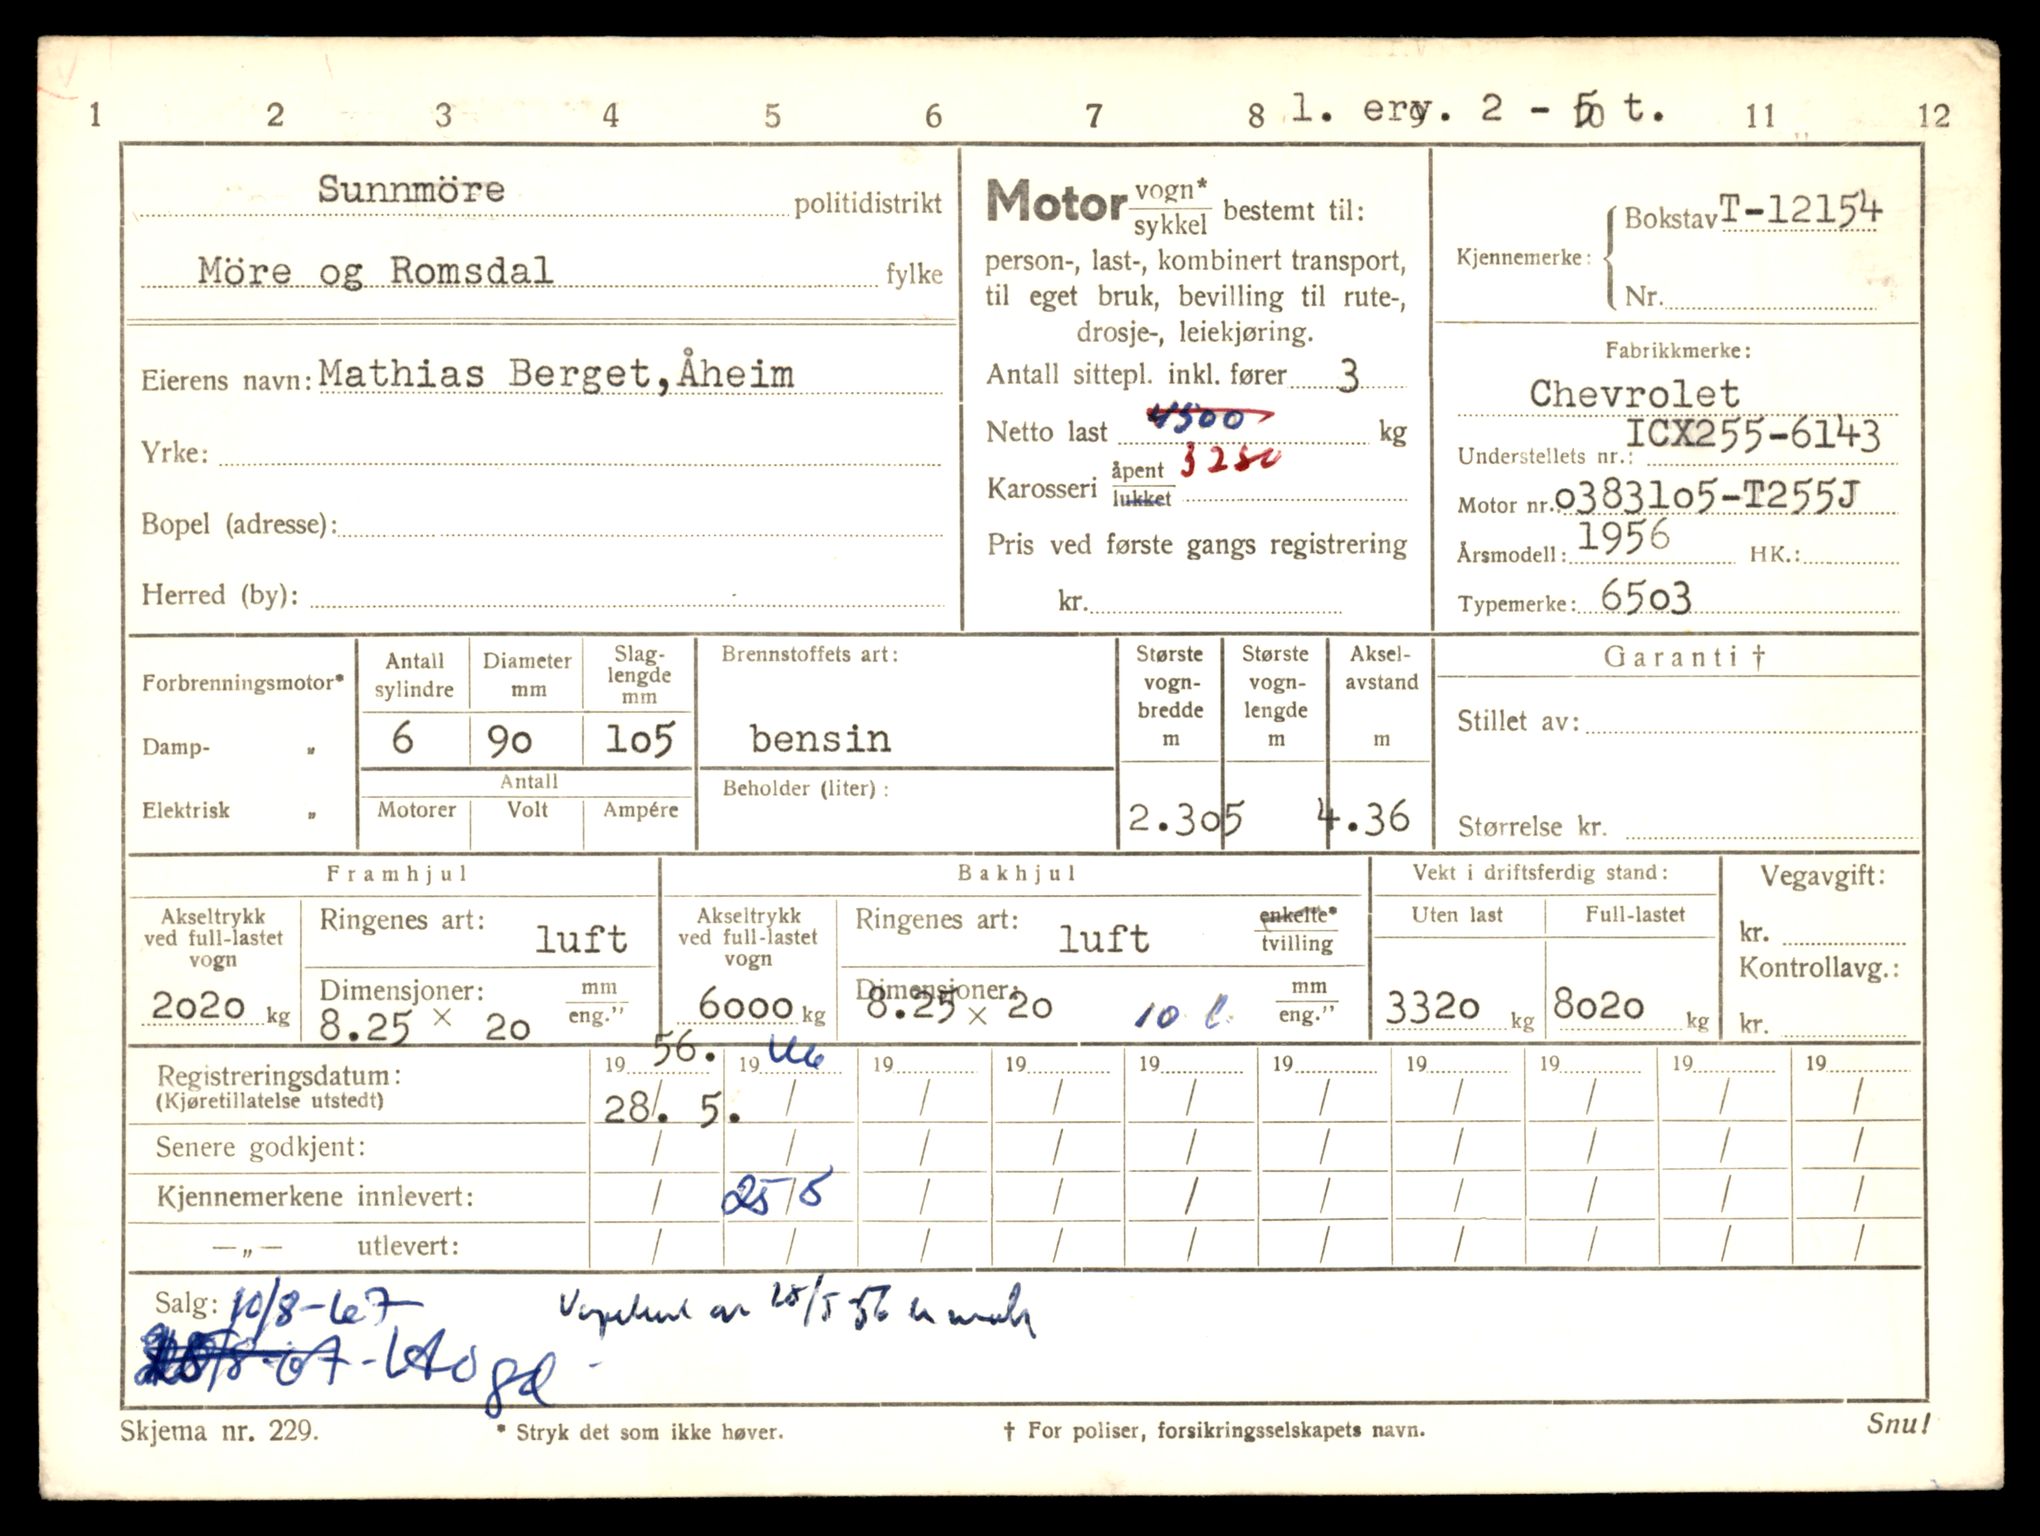 1 2 3 4 5 6 7 8 l. erv. 2 - 5 t. 11 12
Sunnmöre politidistrikt
Möre og Romsdal fylke
Eierens navn: Mathias Berget, Åheim
Yrke:
Bopel (adresse):
Herred (by):
Motor vogn*
sykkel bestemt til:
person-, last-, kombinert transport,
til eget bruk, bevilling til rute-,
drosje-, leiekjøring.
Antall sittepl. inkl. fører 3
Netto last 4500 kg
3250
Karosseri åpent
lukket
Pris ved første gangs registrering
kr.
Kjennemerke: Bokstav T-12154
Nr.
Fabrikkmerke:
Chevrolet
Understellets nr.: ICX255-6143
Motor nr. 0383105-T255J
Årsmodell: 1956 HK.:
Typemerke: 6503
Forbrenningsmotor*
Damp- „
Elektrisk „
Antall sylindre
6
Diameter mm
90
Slag-
lengde
mm
105
Antall
Motorer Volt Ampére
Brennstoffets art:
bensin
Beholder (liter):
Største
vogn-
bredde
m
2.305
Største
vogn-
lengde
m
Aksel-
avstand
m
4.36
Garanti †
Stillet av:
Størrelse kr.
Framhjul
Akseltrykk
ved full-lastet
vogn
2020 kg
Ringenes art:
luft
Dimensjoner: mm
eng."
8.25 × 20
Bakhjul
Akseltrykk
ved full-lastet
vogn
6000 kg
Ringenes art: enkelte*
luft tvilling
Dimensjoner: mm
8.25 × 20 10 l. eng."
Vekt i driftsferdig stand:
Uten last Full-lastet
3320 kg 8020 kg
Vegavgift:
kr.
Kontrollavg.:
kr.
Registreringsdatum: 19 56. 19 66 19 19 19 19 19 19 19 19
(Kjøretillatelse utstedt) 28/. 5. / / / / / / / / /
Senere godkjent: / / / / / / / / / /
Kjennemerkene innlevert: / 25/5 / / / / / / / /
—„— utlevert: / / / / / / / / / /
Salg: 10/8-67 28/5 56
Skjema nr. 229. * Stryk det som ikke høver. † For poliser, forsikringsselskapets navn. Snu!